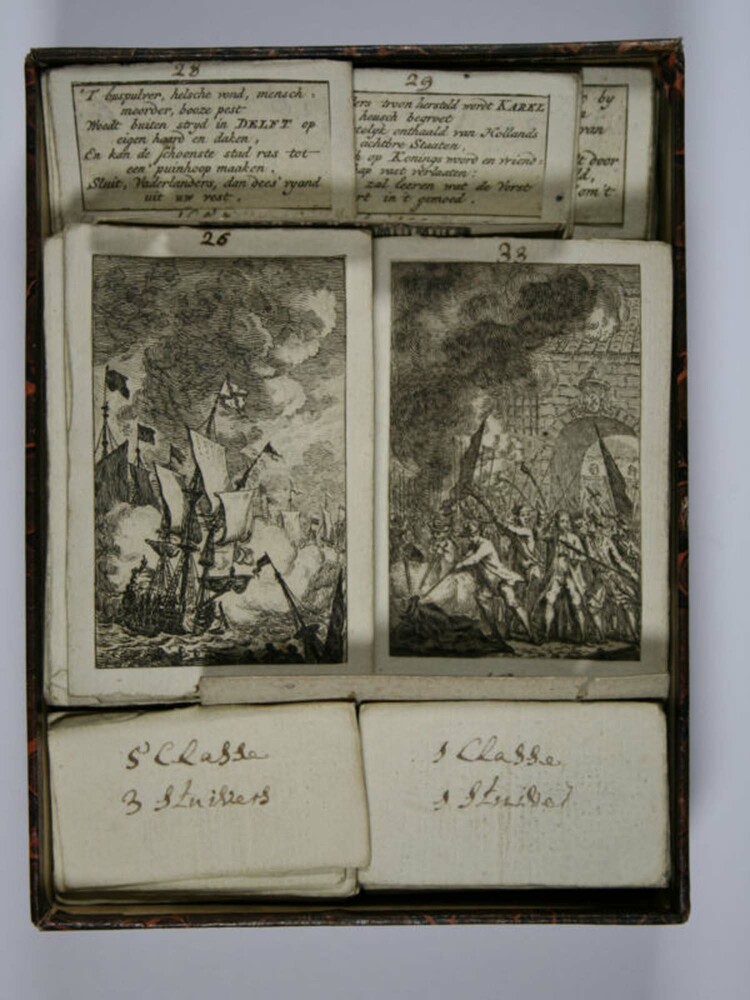 28
'T buspulver, helsche vond, mensch-
moorder, booze pest
Woedt buiten stryd in DELFT op
eigen haard en daken,
En kan de schoonste stad ras tot
een' puinhoop maaken.
Sluit, Vaderlanders, dan dees' vyand
uit uw vest.
29
troon hersteld wordt KAREL
heusch begroet
onthaald van Hollands
achtbre Staaten,
op Konings woord en vriend-
vast verlaaten:
zal leeren wat de Vorst
in 't gemoed.
by
door
om 't
26
33
5 Classe
3 Stuivers
1 Classe
1 Stuiver